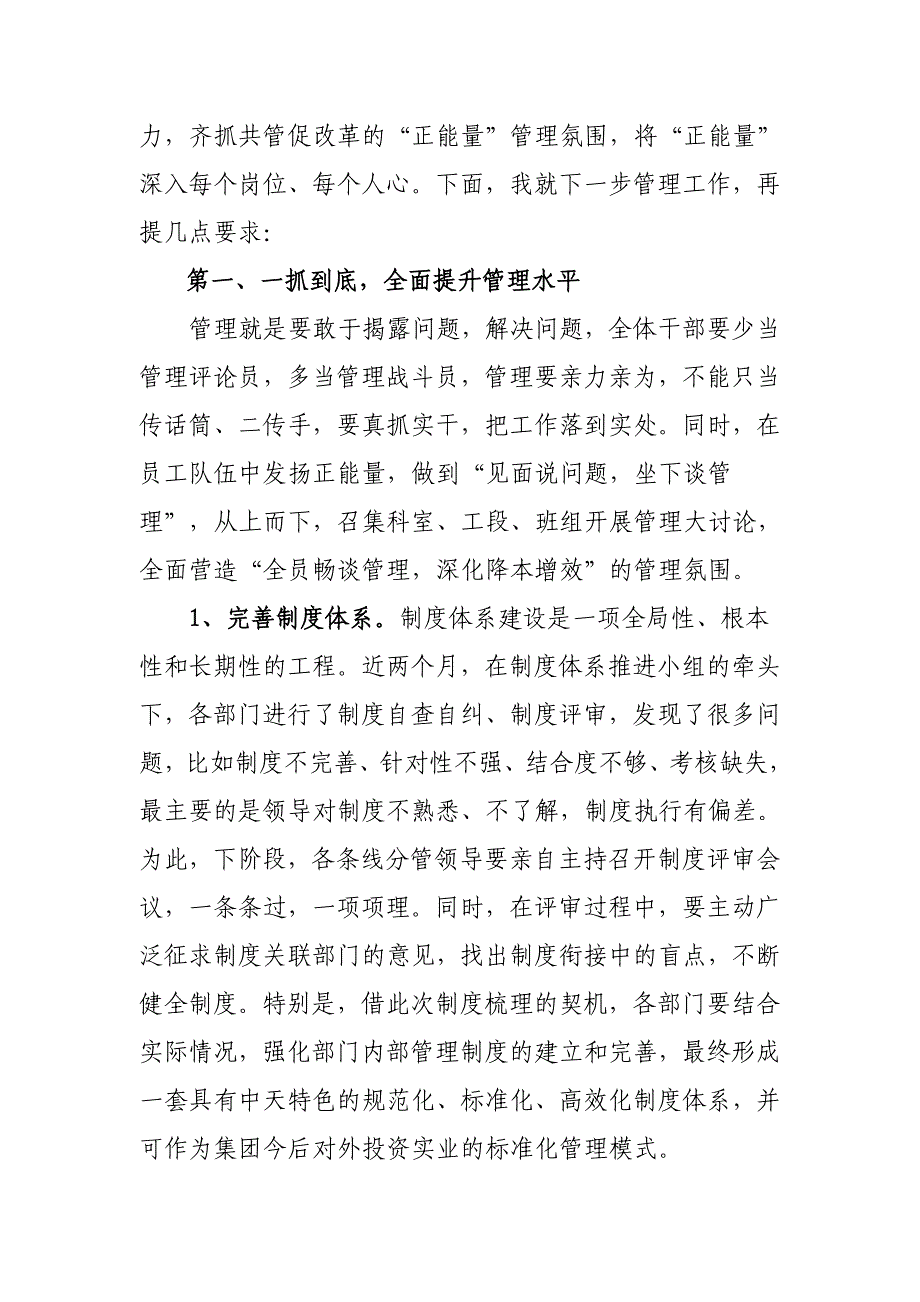 力，齐抓共管促改革的“正能量”管理氛围，将“正能量”
深入每个岗位、每个人心。下面，我就下一步管理工作，再
提几点要求：
第一、一抓到底，全面提升管理水平
管理就是要敢于揭露问题，解决问题，全体干部要少当
管理评论员，多当管理战斗员，管理要亲力亲为，不能只当
传话筒、二传手，要真抓实干，把工作落到实处。同时，在
员工队伍中发扬正能量，做到“见面说问题，坐下谈管
理”，从上而下，召集科室、工段、班组开展管理大讨论，
全面营造“全员畅谈管理，深化降本增效”的管理氛围。
1、完善制度体系。制度体系建设是一项全局性、根本
性和长期性的工程。近两个月，在制度体系推进小组的牵头
下，各部门进行了制度自查自纠、制度评审，发现了很多问
题，比如制度不完善、针对性不强、结合度不够、考核缺失，
最主要的是领导对制度不熟悉、不了解，制度执行有偏差。
为此，下阶段，各条线分管领导要亲自主持召开制度评审会
议，一条条过，一项项理。同时，在评审过程中，要主动广
泛征求制度关联部门的意见，找出制度衔接中的盲点，不断
健全制度。特别是，借此次制度梳理的契机，各部门要结合
实际情况，强化部门内部管理制度的建立和完善，最终形成
一套具有中天特色的规范化、标准化、高效化制度体系，并
可作为集团今后对外投资实业的标准化管理模式。